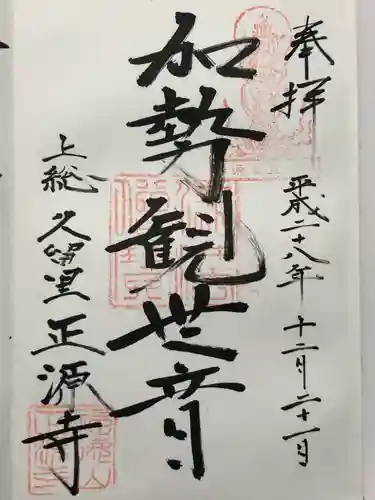 奉拝
平成二十八年十二月二十一日
加勢観世音
上総久留里正源寺